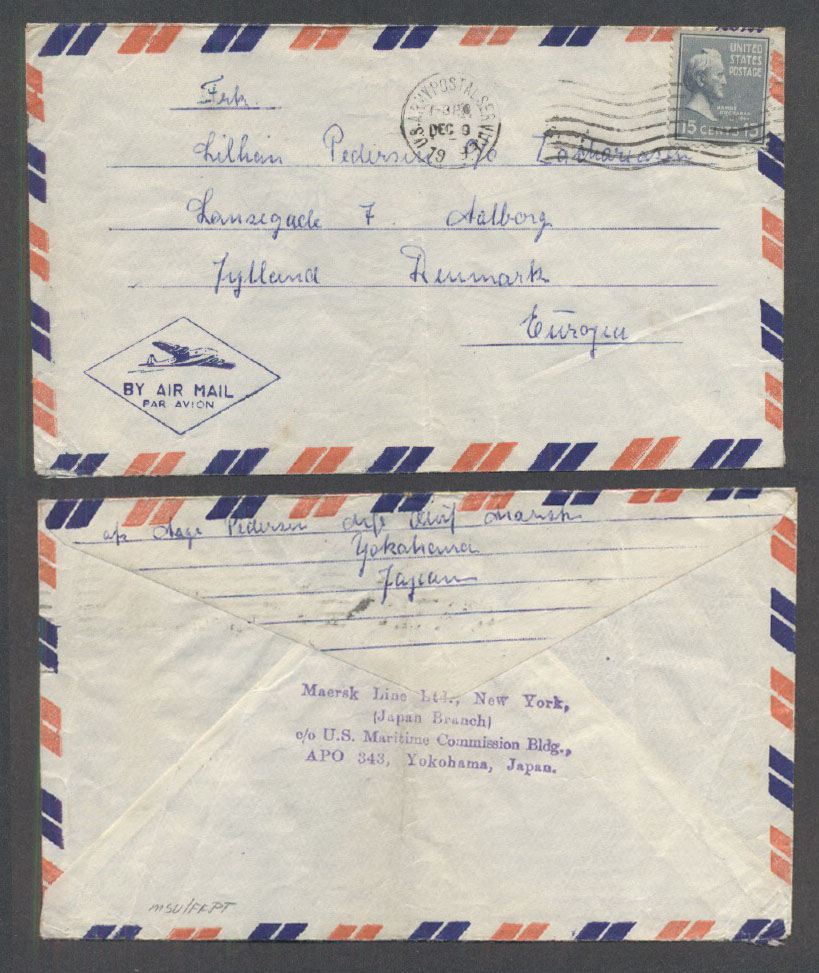 Frk.
U.S. ARMY POSTAL SERVICE
DEC 9
19
UNITED
STATES
POSTAGE
JAMES
BUCHANAN
15 CENTS 15
Lillian Pedersen c/o Zachariasen
7. Aalborg
Jylland Denmark
Europa
BY AIR MAIL
PAR AVION
Aage Pedersen Mærsk
Yokahama
Japan
Maersk Line Ltd., New York,
(Japan Branch)
c/o U.S. Maritime Commission Bldg.,
APO 343, Yokohama, Japan.